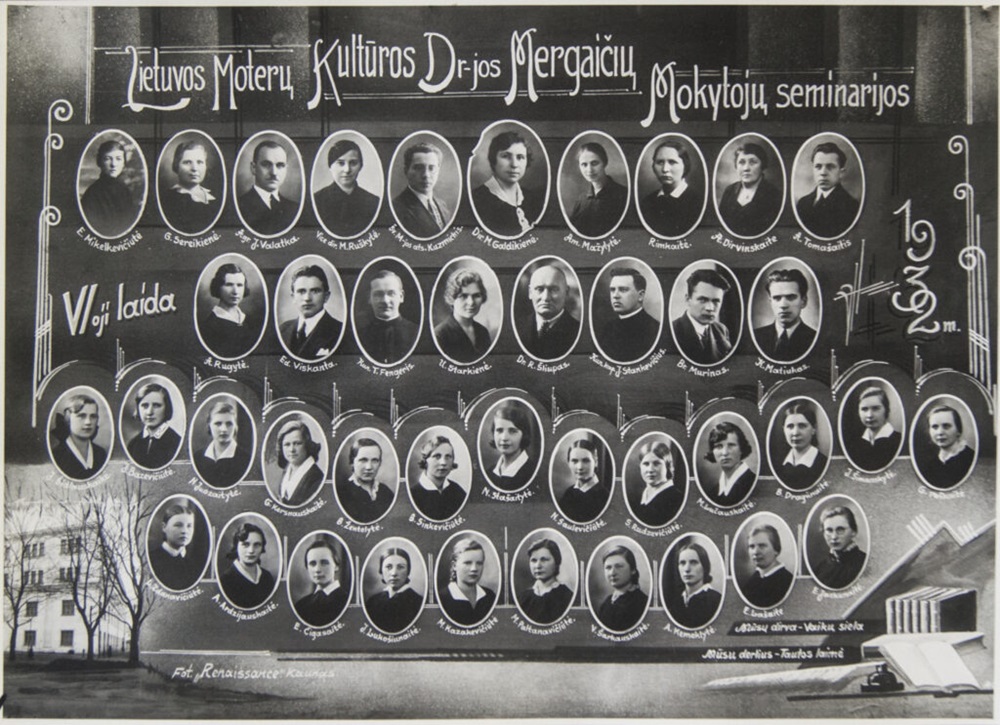 Lietuvos Moterų Kultūros Dr-jos Mergaičių Mokytojų seminarijos
E. Mikelkevičiūtė G. Sereikienė. Agr. J. Valatka Vic dir. M. Ruškytė. M. Kuzmickis. Dir. M. Galdikienė. Am. Mažylytė. Rimkaitė. A. Dirvinskaitė A. Tomašaitis
VI oji laida
1932 m.
A. Rugytė. Ed. Viskanta. Kun. T. Fengeris. U. Starkienė. Dr. R. Šliupas. Kun. J. Stankevičius. Br. Murinas. K. Matiukas.
J. Bazevičiūtė. N. Juozaitytė. G. Kersnauskaitė. B. Zentelytė. B. Sinkevičiūtė. N. Stašaitytė. N. Saulevičiūtė. S. Rudzevičiūtė. B. Draginaitė
A. Ardzijauskaitė. E. Cigasaitė. J. Lukošiunaitė. M. Kazakevičiūtė M. Paltanavičiūtė. V. Sarkauskaitė. A. Remeklytė. E. Lušaitė
Mūsų dirva-Vaikų siela
Mūsų derlius-Tautos laimė
Fot. „Renaissance" Kaunas